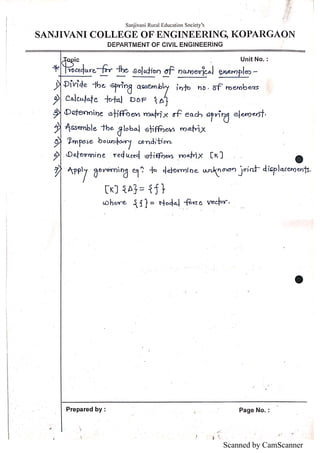 Sanjivani Rural Education Society's
SANJIVANI COLLEGE OF ENGINEERING, KOPARGAON
DEPARTMENT OF CIVIL ENGINEERING
Topic
Unit No. :
* Procedure for the solution of numerical examples -
1) Divide the spring assembly into no. of members
2) Calculate total DOF {Δ}
3) Determine stiffness matrix of each spring element.
4) Assemble the global stiffness matrix
5) Impose boundary condition
6) Determine reduced stiffness matrix [K]
7) Apply governing eqn to determine unknown joint displacements.
[K] {Δ} = {f}
where {f} = Nodal force vector.
Prepared by :
Page No. :
Scanned by CamScanner